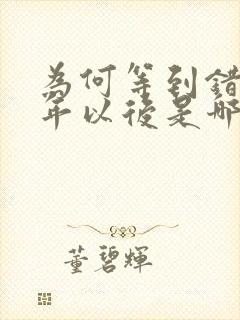 為何等到錯
年以後是那
董碧輝